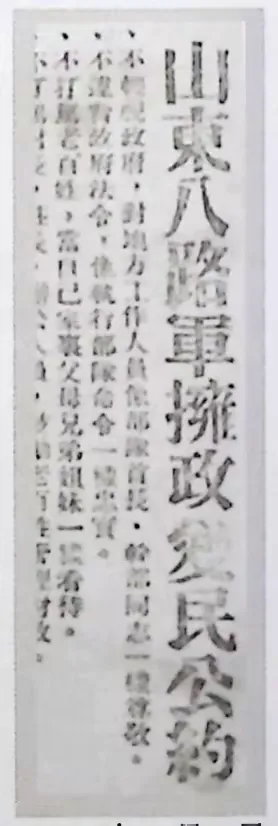 山東八路軍擁政愛民公約
、不輕視政府，對地方工作人員像部隊首長，幹部同志一樣尊敬。
、不違背政府法令，像執行部隊命令一樣忠實。
、不打罵老百姓，當自己家裏父母兄弟姐妹一樣看待。
、不打罵村長，